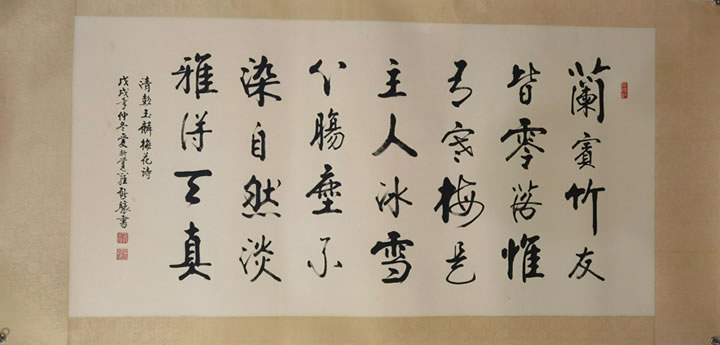 蘭賓竹友
皆零落惟
有寒梅是
主人冰雪
心腸塵不
染自然淡
雅得天真
清彭玉麟梅花詩
戊戌年仲冬愛新覺羅書